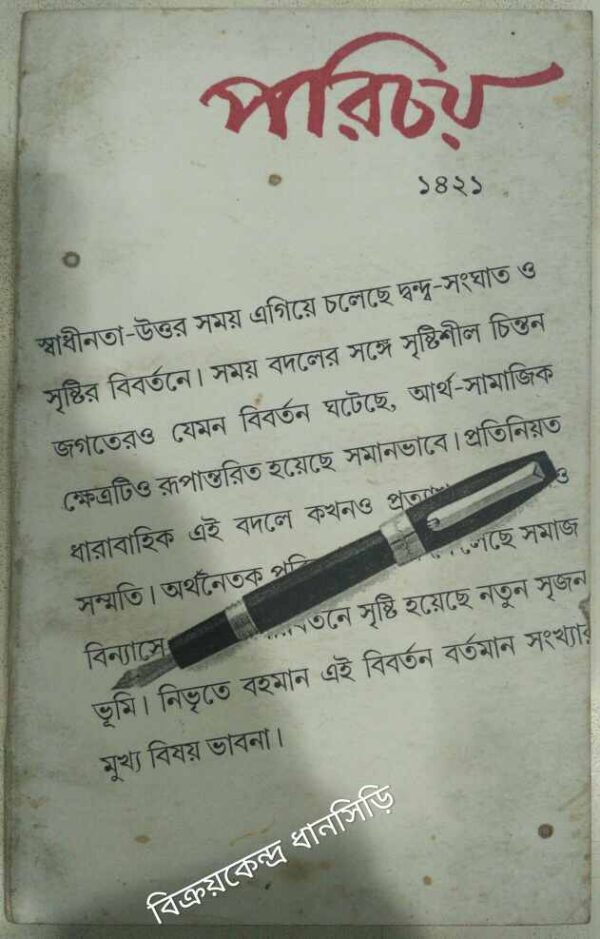 পরিচয়
১৪২১
স্বাধীনতা-উত্তর সময় এগিয়ে চলেছে দ্বন্দ্ব-সংঘাত ও
সৃষ্টির বিবর্তনে। সময় বদলের সঙ্গে সৃষ্টিশীল চিন্তন
জগতেরও যেমন বিবর্তন ঘটেছে, আর্থ-সামাজিক
ক্ষেত্রটিও রূপান্তরিত হয়েছে সমানভাবে। প্রতিনিয়ত
ধারাবাহিক এই বদলে কখনও ও
সম্মতি। অর্থনৈতক সমাজ
বিন্যাসে সৃষ্টি হয়েছে নতুন সৃজন
ভূমি। নিভৃতে বহমান এই বিবর্তন বর্তমান সংখ্যার
মুখ্য বিষয় ভাবনা।
বিক্রয়কেন্দ্র ধানসিড়ি